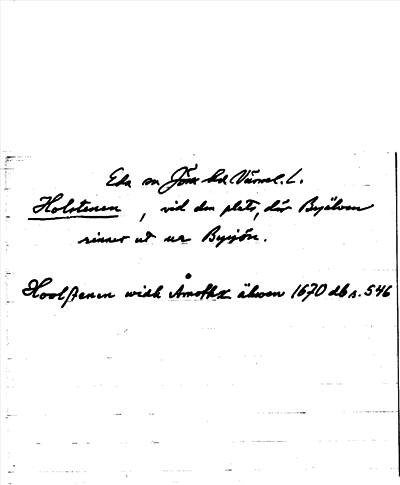 Eda sn Jösse hd Värml. L.
Holstenen, vid den plats, där Byälven
rinner ut ur Bysjön.
Hoolßenen widh Åmothz älwen 1670 db s. 546